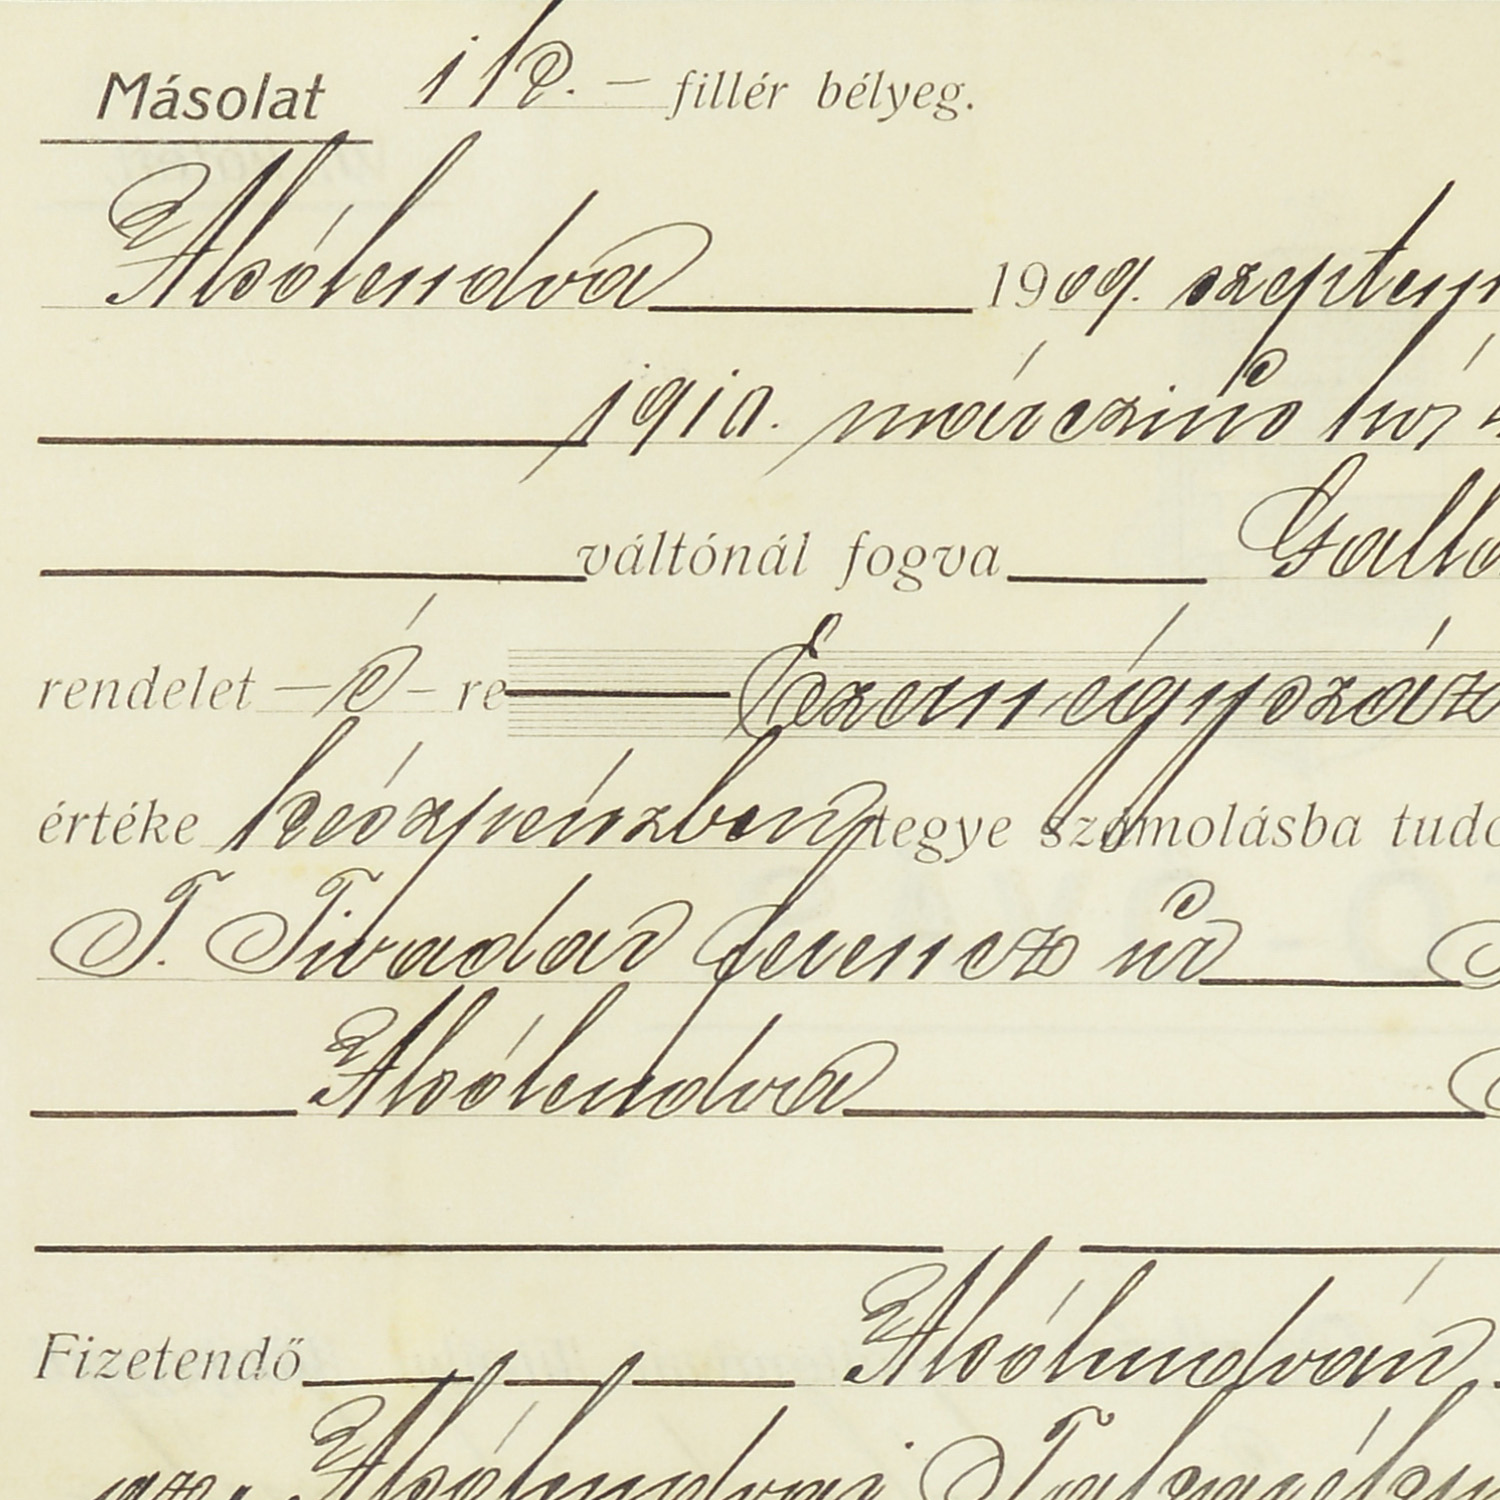 Másolat 1 K. — fillér bélyeg.
Alsólendva 1909. szeptem
1910. márczius hó
váltónál fogva Gall
rendelet — ő — re Ezernégyszáz
értéke készpénzben tegye számolásba tud
T. Tivadar Ferencz úr
Alsólendva
Fizetendő Alsólendván
az. Alsólendvai Takarék